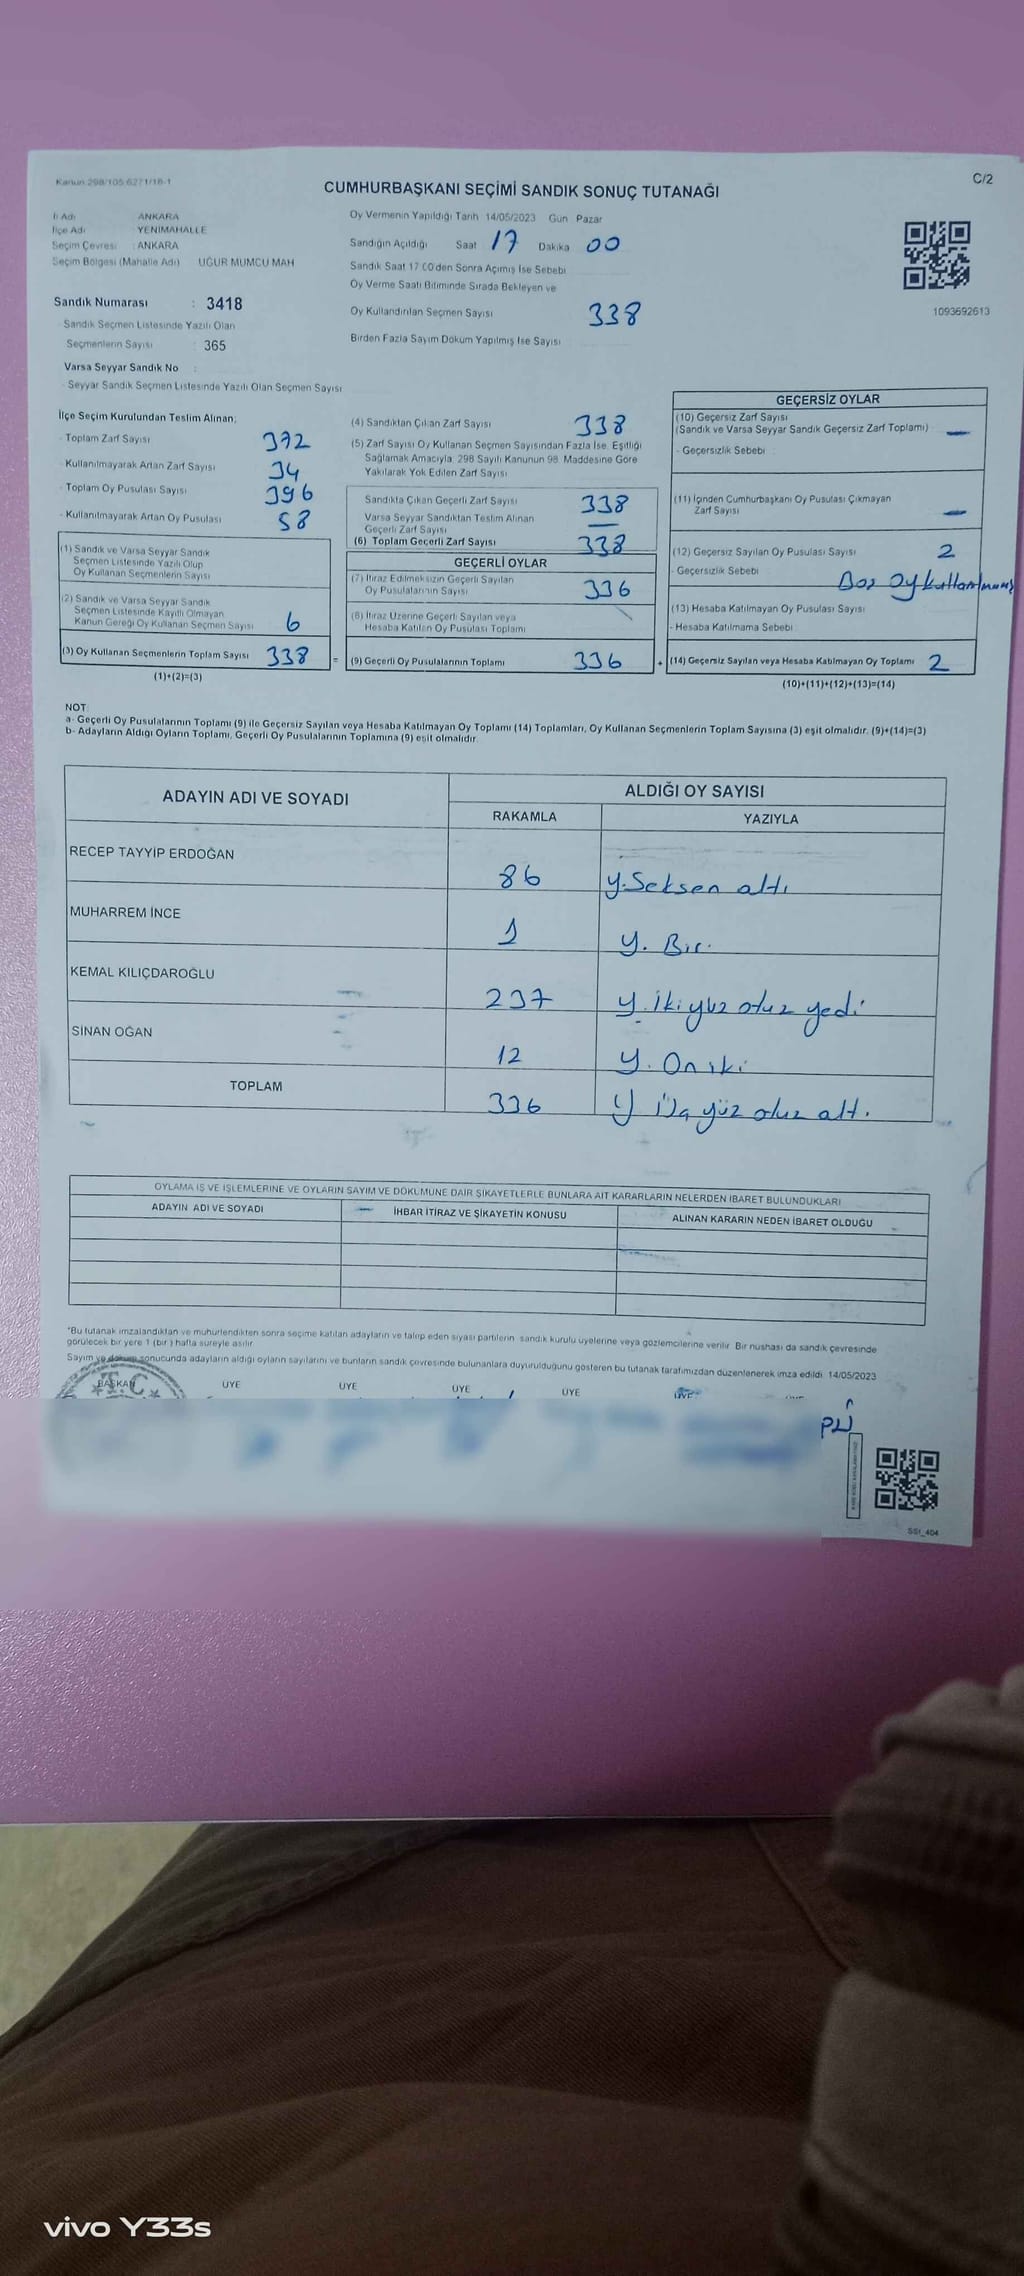 Kanun 298/105 6271/18-1
CUMHURBAŞKANI SEÇİMİ SANDIK SONUÇ TUTANAĞI
C/2
İl Adı : ANKARA
İlçe Adı : YENİMAHALLE
Seçim Çevresi : ANKARA
Seçim Bölgesi (Mahalle Adı) UĞUR MUMCU MAH
Oy Vermenin Yapıldığı Tarih 14/05/2023 Gün Pazar
Sandığın Açıldığı Saat 17 Dakika 00
Sandık Saat 17 00'den Sonra Açılmış İse Sebebi
Oy Verme Saati Bitiminde Sırada Bekleyen ve
Oy Kullandırılan Seçmen Sayısı 338
Birden Fazla Sayım Döküm Yapılmış İse Sayısı
1093692613
Sandık Numarası : 3418
Sandık Seçmen Listesinde Yazılı Olan
Seçmenlerin Sayısı : 365
Varsa Seyyar Sandık No :
- Seyyar Sandık Seçmen Listesinde Yazılı Olan Seçmen Sayısı
İlçe Seçim Kurulundan Teslim Alınan;
- Toplam Zarf Sayısı 372
- Kullanılmayarak Artan Zarf Sayısı 34
- Toplam Oy Pusulası Sayısı 396
- Kullanılmayarak Artan Oy Pusulası 58
(1) Sandık ve Varsa Seyyar Sandık
Seçmen Listesinde Yazılı Olup
Oy Kullanan Seçmenlerin Sayısı
(2) Sandık ve Varsa Seyyar Sandık
Seçmen Listesinde Kayıtlı Olmayan
Kanun Gereği Oy Kullanan Seçmen Sayısı 6
(3) Oy Kullanan Seçmenlerin Toplam Sayısı 338 =
(1)+(2)=(3)
(4) Sandıktan Çıkan Zarf Sayısı 338
(5) Zarf Sayısı Oy Kullanan Seçmen Sayısından Fazla İse, Eşitliği
Sağlamak Amacıyla, 298 Sayılı Kanunun 98. Maddesine Göre
Yakılarak Yok Edilen Zarf Sayısı
Sandıkta Çıkan Geçerli Zarf Sayısı 338
Varsa Seyyar Sandıktan Teslim Alınan
Geçerli Zarf Sayısı —
(6) Toplam Geçerli Zarf Sayısı 338
GEÇERLİ OYLAR
(7) İtiraz Edilmeksizin Geçerli Sayılan
Oy Pusulalarının Sayısı 336
(8) İtiraz Üzerine Geçerli Sayılan veya
Hesaba Katılan Oy Pusulası Toplamı
(9) Geçerli Oy Pusulalarının Toplamı 336 +
GEÇERSİZ OYLAR
(10) Geçersiz Zarf Sayısı
(Sandık ve Varsa Seyyar Sandık Geçersiz Zarf Toplamı) —
- Geçersizlik Sebebi :
(11) İçinden Cumhurbaşkanı Oy Pusulası Çıkmayan
Zarf Sayısı —
(12) Geçersiz Sayılan Oy Pusulası Sayısı 2
- Geçersizlik Sebebi Boş Oy kullanılmış
(13) Hesaba Katılmayan Oy Pusulası Sayısı
- Hesaba Katılmama Sebebi
(14) Geçersiz Sayılan veya Hesaba Katılmayan Oy Toplamı 2
(10)+(11)+(12)+(13)=(14)
NOT:
a- Geçerli Oy Pusulalarının Toplamı (9) ile Geçersiz Sayılan veya Hesaba Katılmayan Oy Toplamı (14) Toplamları, Oy Kullanan Seçmenlerin Toplam Sayısına (3) eşit olmalıdır. (9)+(14)=(3)
b- Adayların Aldığı Oyların Toplamı, Geçerli Oy Pusulalarının Toplamına (9) eşit olmalıdır.
ADAYIN ADI VE SOYADI
ALDIĞI OY SAYISI
RAKAMLA YAZIYLA
RECEP TAYYİP ERDOĞAN 86 Y. Seksen altı
MUHARREM İNCE 1 Y. Bir.
KEMAL KILIÇDAROĞLU 237 Y. İki yüz otuz yedi
SİNAN OĞAN 12 Y. On iki
TOPLAM 336 Y Üç yüz otuz altı.
OYLAMA İŞ VE İŞLEMLERİNE VE OYLARIN SAYIM VE DÖKÜMÜNE DAİR ŞİKAYETLERLE BUNLARA AİT KARARLARIN NELERDEN İBARET BULUNDUKLARI
ADAYIN ADI VE SOYADI İHBAR İTİRAZ VE ŞİKAYETİN KONUSU ALINAN KARARIN NEDEN İBARET OLDUĞU
*Bu tutanak imzalandıktan ve mühürlendikten sonra seçime katılan adayların ve talep eden siyasi partilerin sandık kurulu üyelerine veya gözlemcilerine verilir. Bir nüshası da sandık çevresinde
görülecek bir yere 1 (bir) hafta süreyle asılır.
Sayım ve döküm sonucunda adayların aldığı oyların sayılarını ve bunların sandık çevresinde bulunanlara duyurulduğunu gösteren bu tutanak tarafımızdan düzenlenerek imza edildi. 14/05/2023
BAŞKAN ÜYE ÜYE ÜYE ÜYE ÜYE
T.C
SSt_404
vivo Y33s